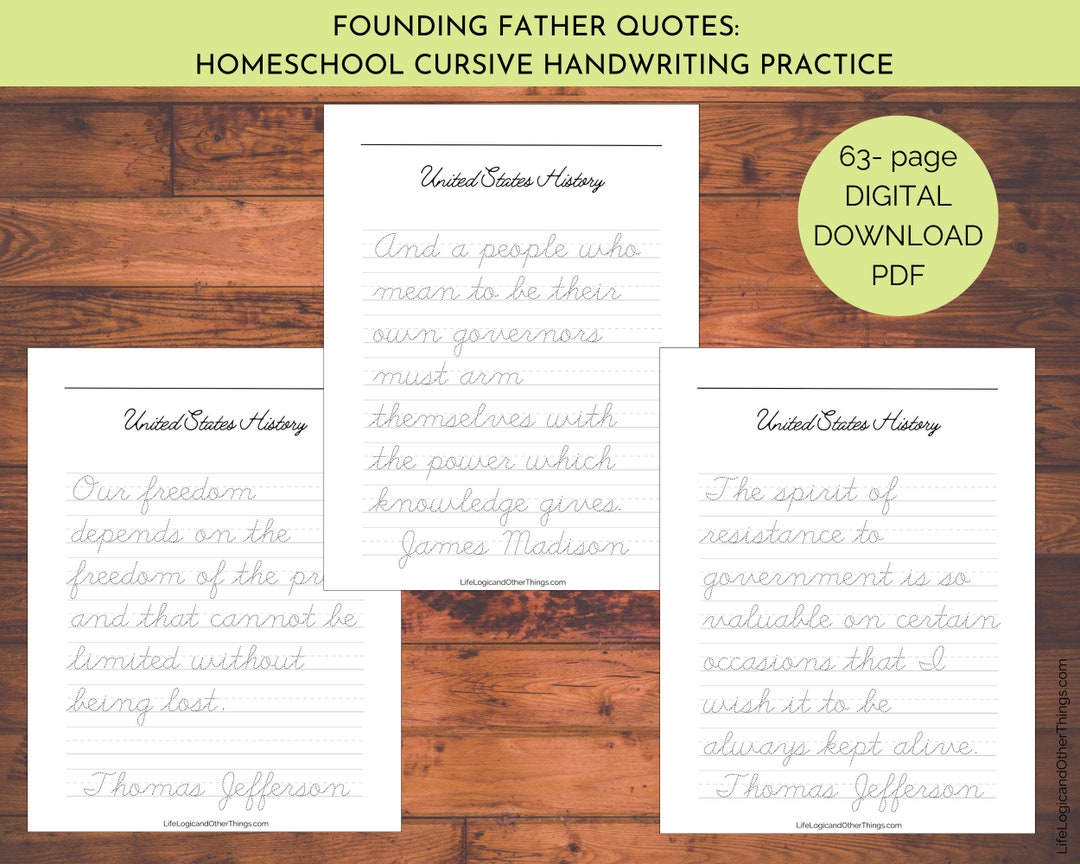 FOUNDING FATHER QUOTES:
HOMESCHOOL CURSIVE HANDWRITING PRACTICE
63- page
DIGITAL
DOWNLOAD
PDF
United States History
And a people who
mean to be their
own governors
must arm
themselves with
the power which
knowledge gives.
James Madison
LifeLogicandOtherThings.com
United States History
Our freedom
depends on the
freedom of the pr
and that cannot be
limited without
being lost.
Thomas Jefferson
LifeLogicandOtherThings.com
United States History
The spirit of
resistance to
government is so
valuable on certain
occasions that I
wish it to be
always kept alive.
Thomas Jefferson
LifeLogicandOtherThings.com
LifeLogicandOtherThings.com